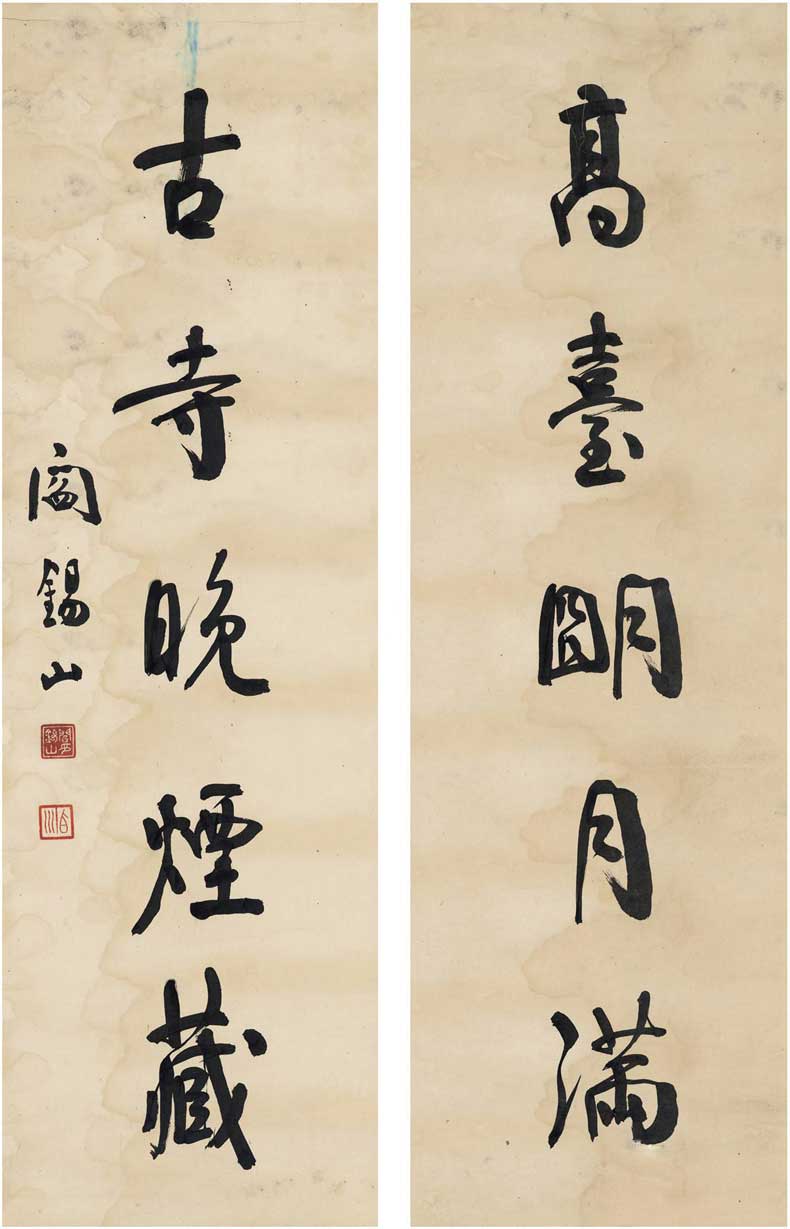 高臺明月滿
古寺晚煙藏
閻錫山
閻錫山印
百川